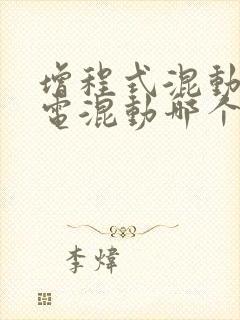 增程式混動
電混動哪个
李煒